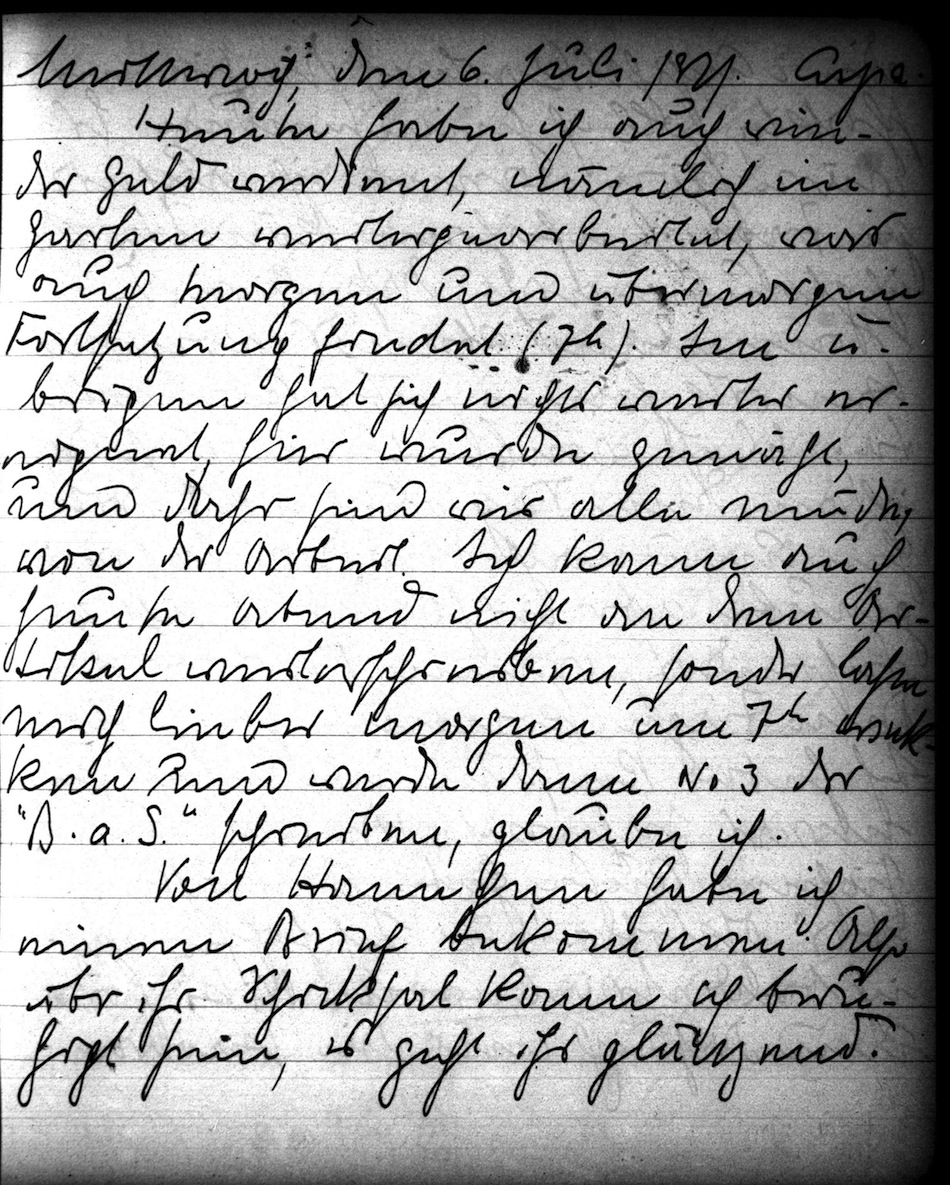 Mittwoch, den 6. Juli 1921.
Heute habe ich auch wie-
der Geld verdient, nämlich im
Garten weitergearbeitet, was
auch morgen und übermorgen
Fortsetzung findet (7h). Im ü-
brigen hat sich nichts weiter er-
eignet, hier wurde gemäht,
und daher sind wir alle müde,
von der Arbeit. Ich kann auch
heute abend nicht an dem Ar-
tikel weiterschreiben, sonder lasse
mich lieber morgen um 7h wek-
ken und werde dann No 3 der
"B. a. S." schreiben, glaube ich.
Von Hannchen habe ich
einen Brief bekommen. Also
über ihr Schicksal kann ich beru-
higt sein, es geht ihr glänzend.